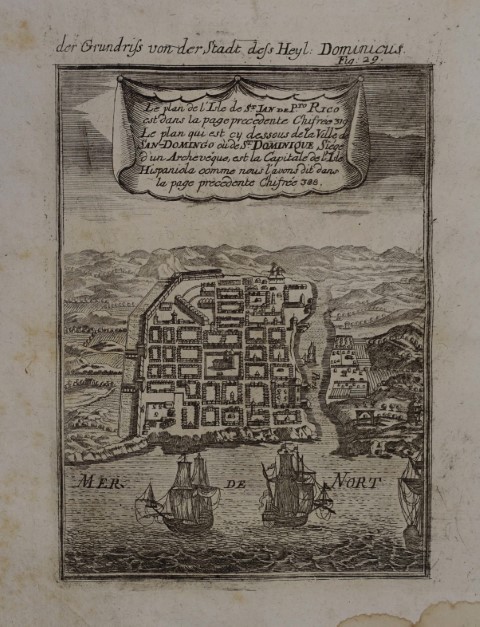 der Grundriſs von der Stadt deſs Heyl: Dominicus.
Fig: 29.
Le plan de l'Isle de S.T IAN DE P.TO RICO
est dans la page precedente Chifrée 319
Le plan qui est cy dessous de la Ville de
SAN-DOMINGO ou de S.T DOMINIQUE, Siege
d'un Archevéque, est la Capitale de l'Isle
Hispaniola comme nous l'avons dit dans
la page precedente Chifrée
MER DE NORT